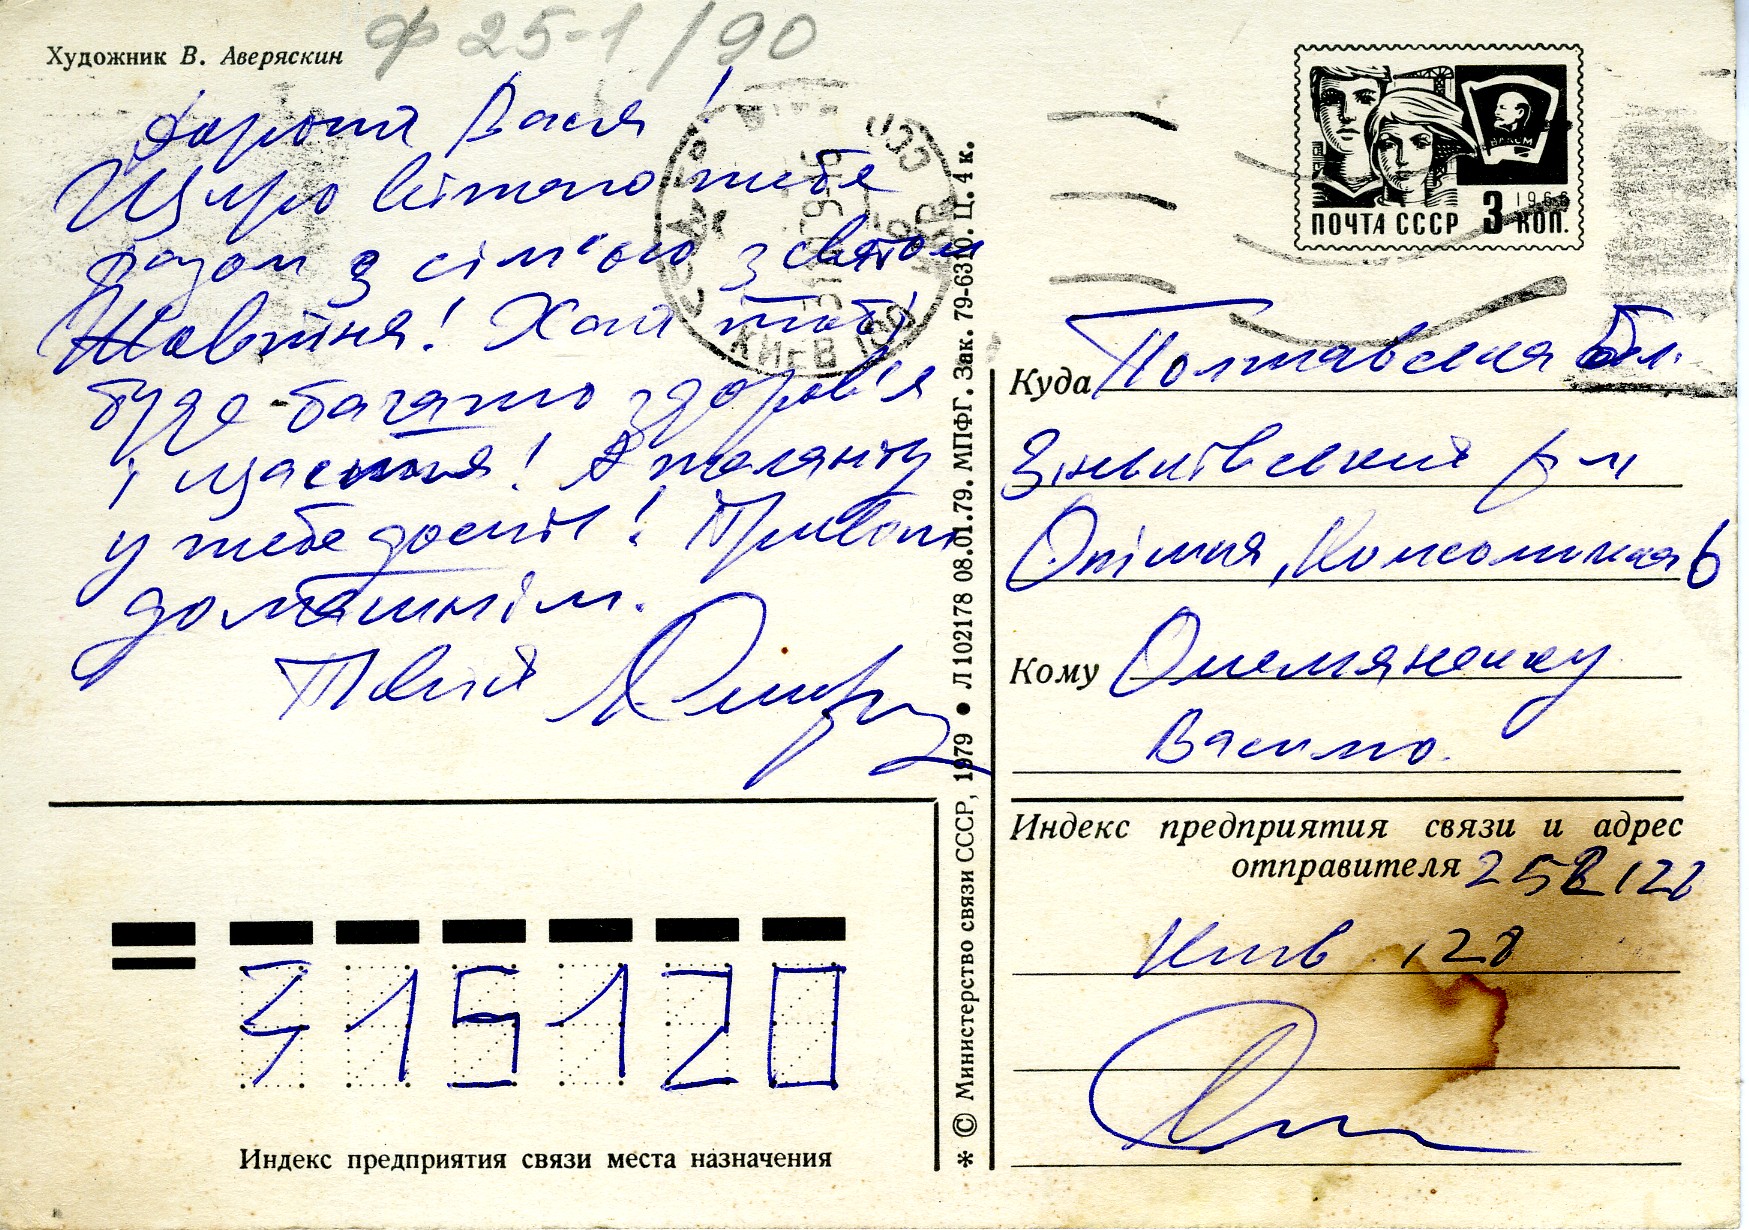 Художник В. Аверяскин
Ф 25-1/90
Дорогий Вася!
Щиро вітаю тебе
разом з сім'єю з святом
Жовтня! Хай тобі
буде багато здоров'я
і щастя! А таланту
у тебе досить! Привіт
домашнім.
Твій
КИЕВ
ПОЧТА СССР 3 КОП.
1966
ВЛКСМ
Куда Полтавская обл.
Зіньківський р-н
Опішня, Комсомольская 6
Кому Омеляненку
Василю.
Индекс предприятия связи и адрес
отправителя
Київ 128
315120
Индекс предприятия связи места назначения
* © Министерство связи СССР, 1979 ● Л 102178 08.01.79. МПФГ. Зак. 79-6310. Ц. 4 к.